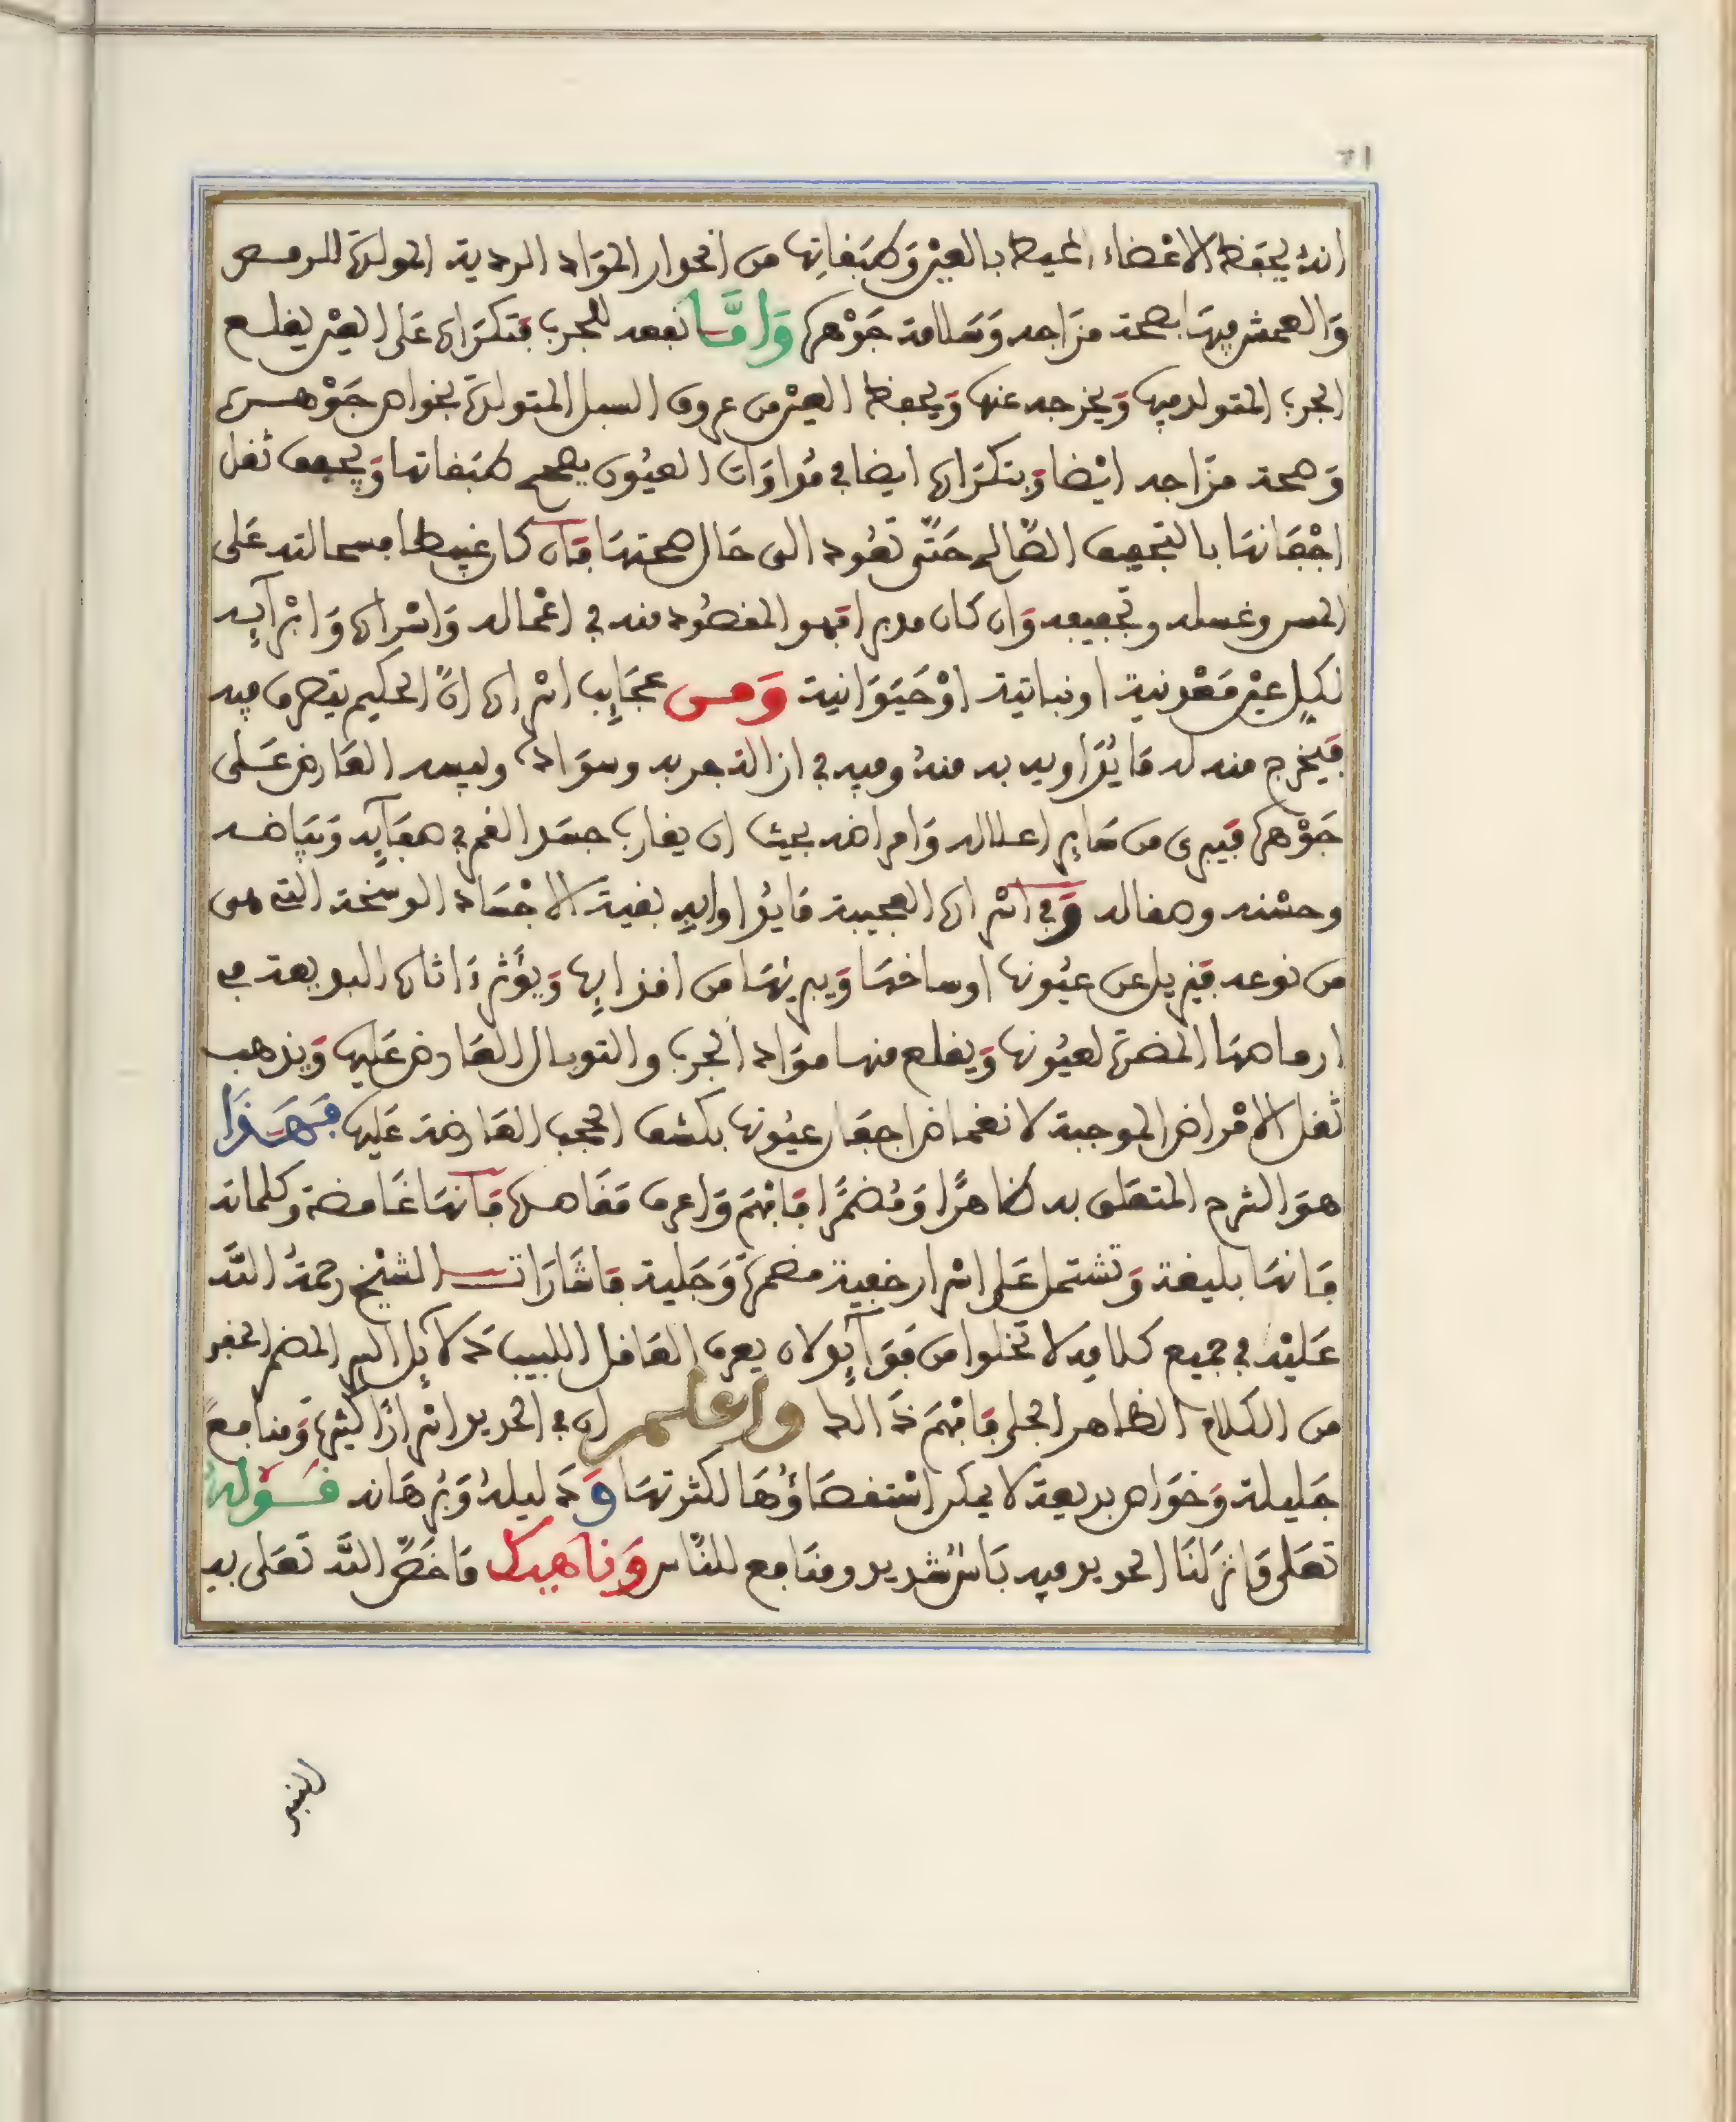 71
انه يحفظ الاعضاء المحيط بالعين وطبقاتها من انحدار المواد الردية المولدة للرمص
والعمش فيها بصحة مزاجه وسلامة جوهره وأما نفعه للجرب فتكراره على العين يقلع
الجرب المتولد فيها ويخرجه عنها ويحفظ العين من عروق السبل المتولدة بخواص جوهره
وصحة مزاجه ايضا وبتكراره ايضا في مداوات العيون يصحح طبقاتها ويجفف ثقل
اجفانها بالتجفيف الصالح حتى تعود الى حال صحتها فان كان غبيطا فسحالته على
المسن وغسله وتجفيفه وان كان مدبرا فهو المقصود منه في اعماله واسراره وابرآيه
لكل عين معدنية او نباتية او حيوانية ومن عجايب اسراره ان الحكيم يتصرف فيه
فيخرج منه له ما يداويه به منه وفيه في ازالة جربه وسواده ويبسه العارض على
جوهره فيبرى من ساير اعلاله وامراضه بحيث ان يقارب جسد القمر في صفايه وبياضه
وحسنه وصقاله وفي اسراره العجيبة ما يداوا به بقية الاجساد الوسخة التي هي
من نوعه فيزيل عن عيونها اوساخها ويبريها من اقذايها ويؤثر ءاثاره البديعة في
ارماصها المضرة لعيونها ويقلع منها مواد الجرب والتوبال العارض عليها ويذهب
ثقل الامراض الموجبة لانغماض اجفان عيونها بكشف الحجب العارضة عليها فهذا
هو الشرح المتعلق به ظاهرا ومضمرا فافهم واعرف مقاصده فانها غامضة وكلماته
فانها بليغة وتشتمل على اسرار خفية مضمرة وجلية فاشارات الشيخ رحمة الله
عليه في جميع كلامه لا تخلوا من فوآيد لان يعرف العاقل اللبيب دلآيل السر المضمر الخفي
من الكلام الظاهر الجلي فافهم ذالك واعلم ان في الحديد اسرارا كثيرة ومنافع
جليلة وخواص بديعة لا يمكن استقصاؤها لكثرتها ودليله وبرهانه قوله
تعلى وانزلنا الحديد فيه باس شديد ومنافع للناس وناهيك ما خص الله تعلى به